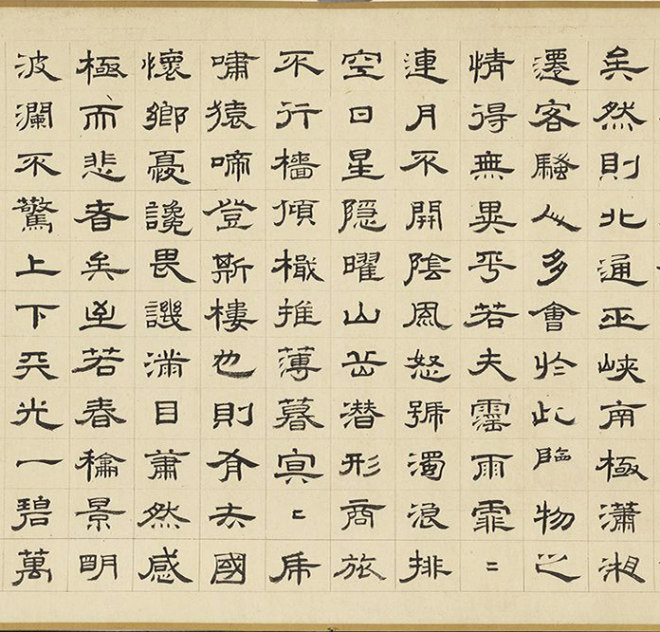 矣然則北通巫峽南極瀟湘
遷客騷人多會於此臨物之
情得無異乎若夫霪雨霏〻
連月不開陰風怒號濁浪排
空日星隱曜山岳潜形商旅
不行檣傾檝推薄暮冥〻虎
嘯猿啼登斯樓也則有去國
懷鄉憂讒畏譏滿目蕭然感
極而悲者矣至若春龢景明
波瀾不驚上下天光一碧萬